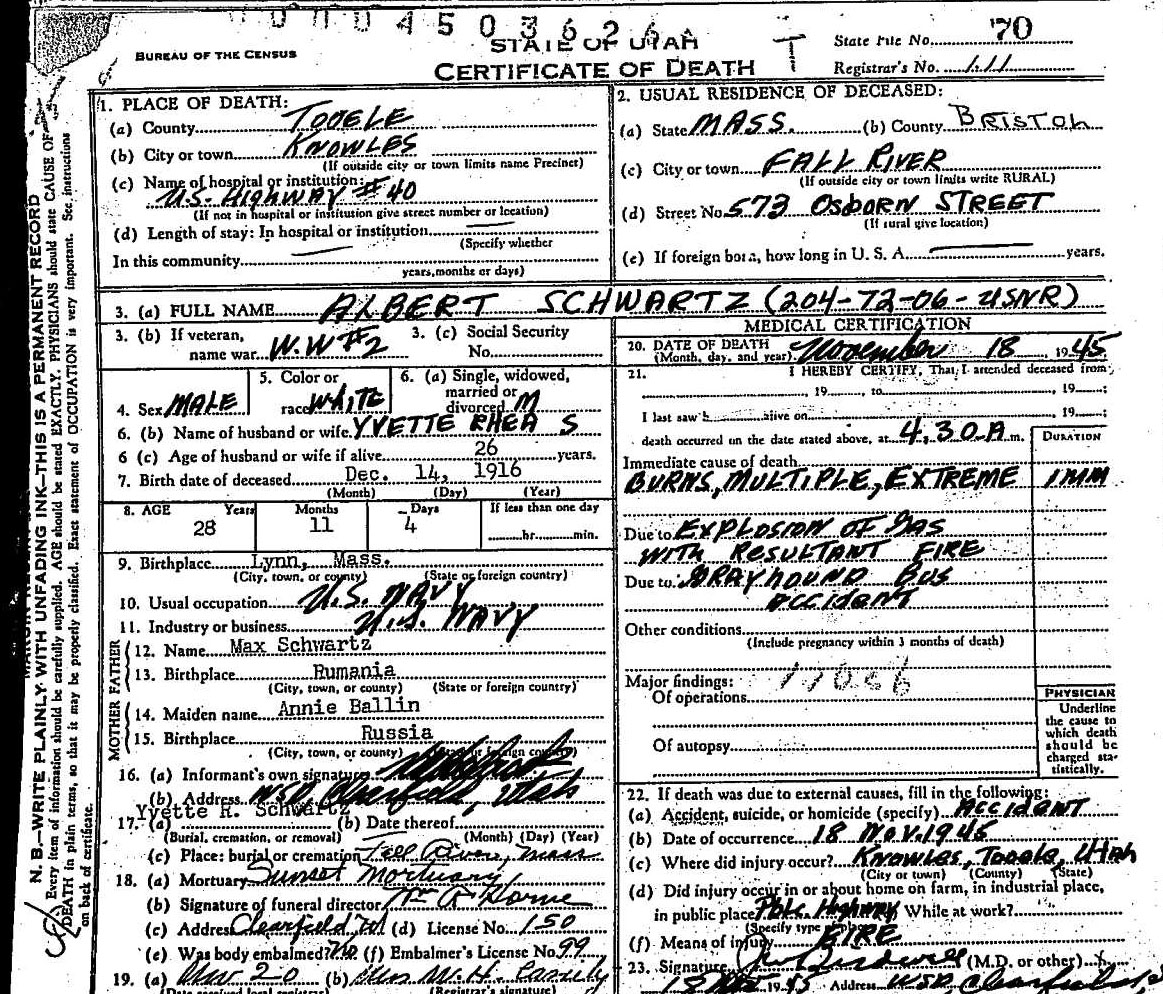 0 0 0 4 5 0 3 6 2 6
BUREAU OF THE CENSUS
STATE OF UTAH
CERTIFICATE OF DEATH
T
State File No. 70
Registrar's No. 111
N. B.—WRITE PLAINLY WITH UNFADING INK—THIS IS A PERMANENT RECORD
Every item of information should be carefully supplied. AGE should be stated EXACTLY. PHYSICIANS should state CAUSE OF
DEATH in plain terms, so that it may be properly classified. Exact statement of OCCUPATION is very important. See instructions
on back of certificate.
1. PLACE OF DEATH:
(a) County TOOELE
(b) City or town KNOWLES
(If outside city or town limits name Precinct)
(c) Name of hospital or institution:
U.S. HIGHWAY #40
(If not in hospital or institution give street number or location)
(d) Length of stay: In hospital or institution
(Specify whether
In this community
years, months or days)
2. USUAL RESIDENCE OF DECEASED:
(a) State MASS. (b) County BRISTOL
(c) City or town FALL RIVER
(If outside city or town limits write RURAL)
(d) Street No. 573 OSBORN STREET
(If rural give location)
(e) If foreign born, how long in U. S. A. years.
3. (a) FULL NAME ALBERT SCHWARTZ (204-72-06-USNR)
3. (b) If veteran,
name war W.W #2
3. (c) Social Security
No.
4. Sex MALE
5. Color or
race WHITE
6. (a) Single, widowed,
married or
divorced M
6. (b) Name of husband or wife YVETTE RHEA S
6 (c) Age of husband or wife if alive 26 years.
7. Birth date of deceased Dec. 14, 1916
(Month) (Day) (Year)
8. AGE Years Months Days If less than one day
28 11 4 hr. min.
9. Birthplace Lynn, Mass.
(City, town, or county) (State or foreign country)
10. Usual occupation U.S. NAVY
11. Industry or business U.S. NAVY
FATHER
12. Name Max Schwartz
13. Birthplace Rumania
(City, town, or county) (State or foreign country)
MOTHER
14. Maiden name Annie Ballin
15. Birthplace Russia
(City, town, or county) (State or foreign country)
16. (a) Informant's own signature
(b) Address NSD Clearfield, Utah
Yvette R. Schwartz
17. (a) (b) Date thereof
(Burial, cremation, or removal) (Month) (Day) (Year)
(c) Place: burial or cremation Fall River, Mass
18. (a) Mortuary Sunset Mortuary
(b) Signature of funeral director Wm R Horne
(c) Address Clearfield (d) License No. 150
(e) Was body embalmed? (f) Embalmer's License No. 99
19. (a) Nov 20 (b) Mrs W.H. Cassity
(Date received local registrar) (Registrar's signature)
MEDICAL CERTIFICATION
20. DATE OF DEATH
(Month, day, and year) November 18, 1945
21. I HEREBY CERTIFY, That I attended deceased from
, 19 , to , 19 ;
I last saw h alive on , 19 ;
death occurred on the date stated above, at 4:30 A m.
DURATION
Immediate cause of death
BURNS, MULTIPLE, EXTREME 1 MM
Due to EXPLOSION OF GAS
WITH RESULTANT FIRE
Due to GRAYHOUND BUS
ACCIDENT
Other conditions
(Include pregnancy within 3 months of death)
Major findings:
Of operations
Of autopsy
PHYSICIAN
Underline
the cause to
which death
should be
charged sta-
tistically.
22. If death was due to external causes, fill in the following:
(a) Accident, suicide, or homicide (specify) ACCIDENT
(b) Date of occurrence 18 NOV. 1945
(c) Where did injury occur? KNOWLES, TOOELE, UTAH
(City or town) (County) (State)
(d) Did injury occur in or about home on farm, in industrial place,
in public place Pblc. Highway While at work?
(Specify type place)
(f) Means of injury FIRE
23. Signature (M.D. or other)
18 Nov 1945 Address NSD Clearfield,